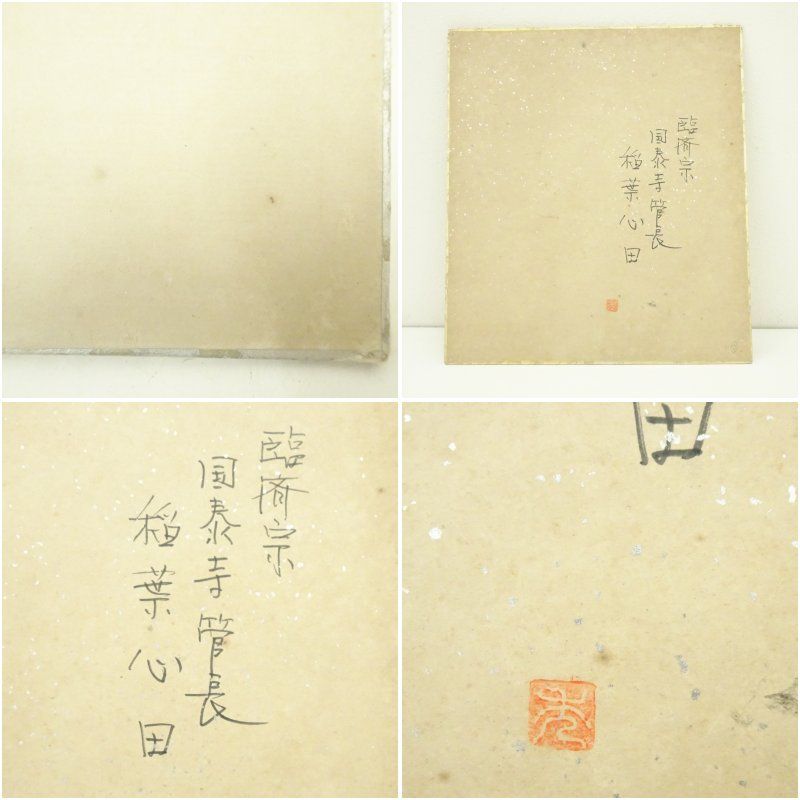 臨済宗
国泰寺管長
稲葉心田
臨済宗
国泰寺管長
稲葉心田
田